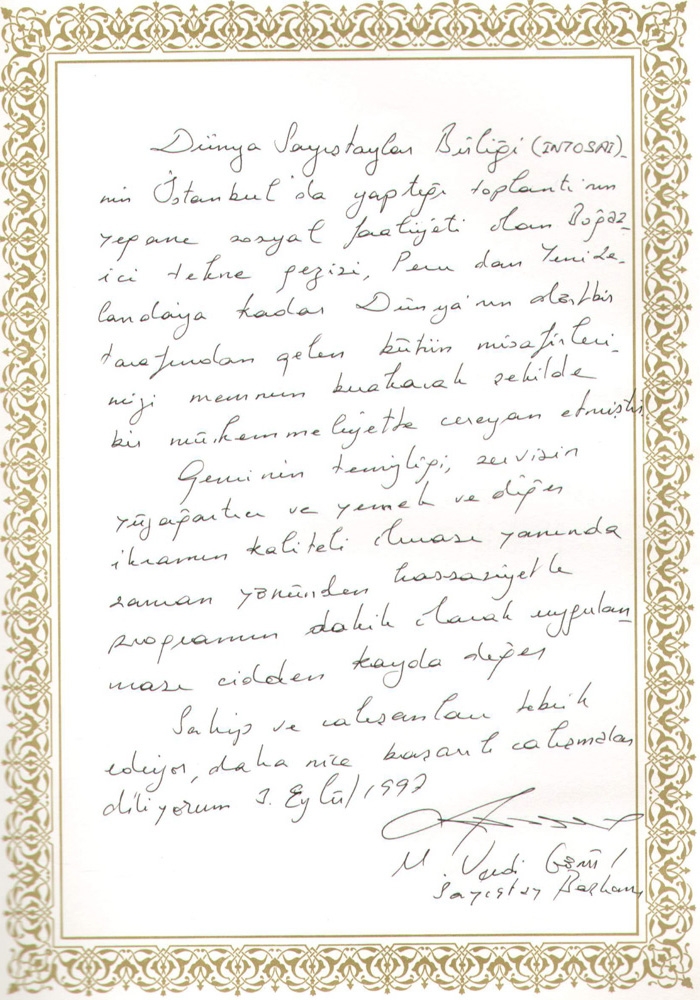 Dünya Sayıştaylar Birliği (INTOSAI)-
nin İstanbul'da yaptığı toplantı'nın
yegane sosyal faaliyeti olan Boğaz-
içi tekne gezisi, Peru dan Yeni Ze-
landa'ya kadar Dünya'nın dört bir
tarafından gelen bütün misafirleri-
mizi memnun bırakacak şekilde
bir mükemmeliyette cereyan etmiştir.
Geminin temizliği, servisin
yüzağartıcı ve yemek ve diğer
ikramın kaliteli olması yanında
zaman yönünden hassasiyetle
programın dakik olarak uygulan-
ması cidden kayda değer
Sahip ve çalışanları tebrik
ediyor, daha nice başarılı çalışmalar
diliyorum 3. Eylül/1997
M. Vecdi Gönül
Sayıştay Başkanı